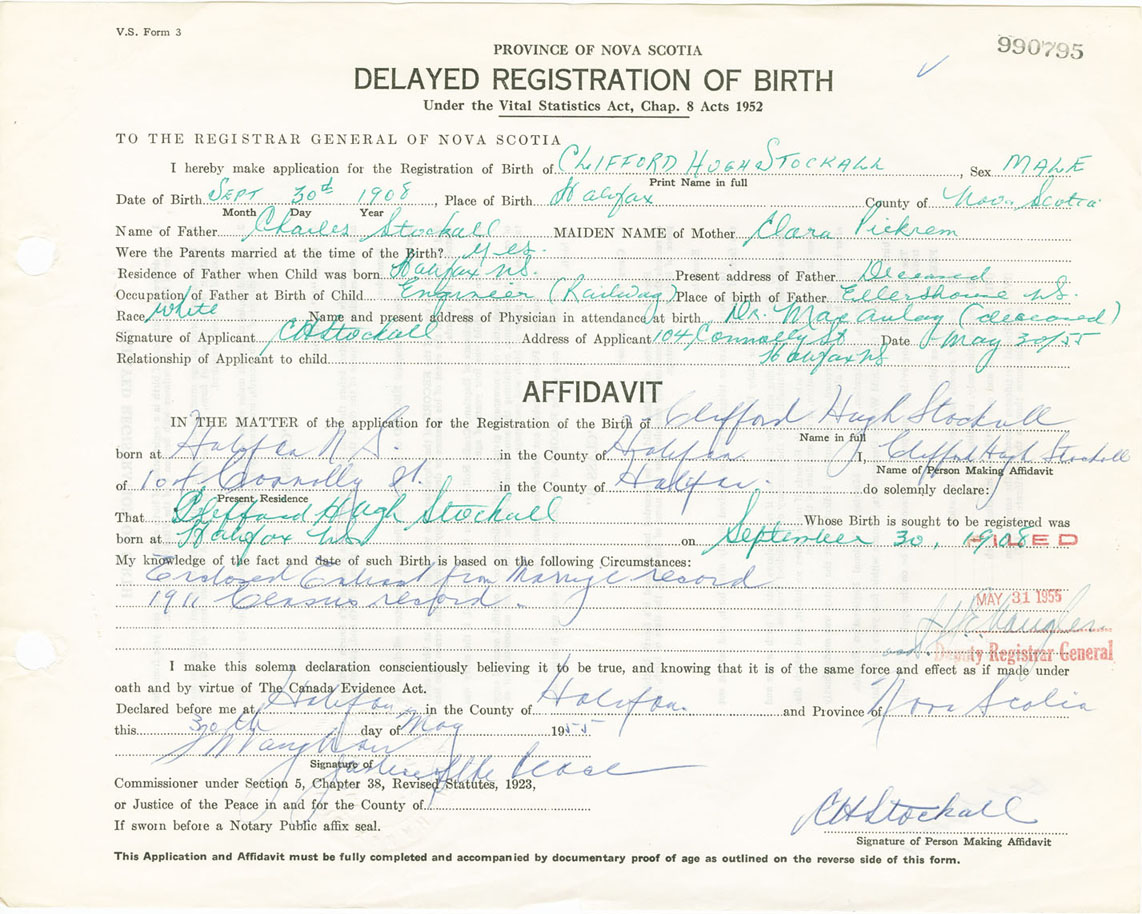 V.S. Form 3
990795
PROVINCE OF NOVA SCOTIA
DELAYED REGISTRATION OF BIRTH
Under the Vital Statistics Act, Chap. 8 Acts 1952
TO THE REGISTRAR GENERAL OF NOVA SCOTIA
I hereby make application for the Registration of Birth of CLIFFORD HUGH STOCKALL, Sex MALE
Print Name in full
Date of Birth SEPT 30th 1908, Place of Birth Halifax County of Nova Scotia
Month Day Year
Name of Father Charles Stockall MAIDEN NAME of Mother Clara Pickrem
Were the Parents married at the time of the Birth? Yes.
Residence of Father when Child was born Halifax NS. Present address of Father Deceased
Occupation of Father at Birth of Child Engineer (Railway) Place of birth of Father Ellershouse NS.
Race White Name and present address of Physician in attendance at birth Dr. MacAulay (deceased)
Signature of Applicant CHStockall Address of Applicant 104 Connolly St Date May 30/55
Halifax NS
Relationship of Applicant to child
AFFIDAVIT
IN THE MATTER of the application for the Registration of the Birth of Clifford Hugh Stockall
Name in full
born at Halifax N.S. in the County of Halifax I, Clifford Hugh Stockall
Name of Person Making Affidavit
of 104 Connolly St. in the County of Halifax. do solemnly declare:
Present Residence
That Clifford Hugh Stockall Whose Birth is sought to be registered was
born at Halifax NS on September 30, 1908 FILED
My knowledge of the fact and date of such Birth is based on the following Circumstances:
Enclosed Extract from Marriage record
1911 Census record.
MAY 31 1955
Deputy Registrar General
I make this solemn declaration conscientiously believing it to be true, and knowing that it is of the same force and effect as if made under
oath and by virtue of The Canada Evidence Act.
Declared before me at Halifax in the County of Halifax. and Province of Nova Scotia
this 30th day of May 1955
Signature of Justice of the Peace
Commissioner under Section 5, Chapter 38, Revised Statutes, 1923,
or Justice of the Peace in and for the County of
If sworn before a Notary Public affix seal.
CHStockall
Signature of Person Making Affidavit
This Application and Affidavit must be fully completed and accompanied by documentary proof of age as outlined on the reverse side of this form.